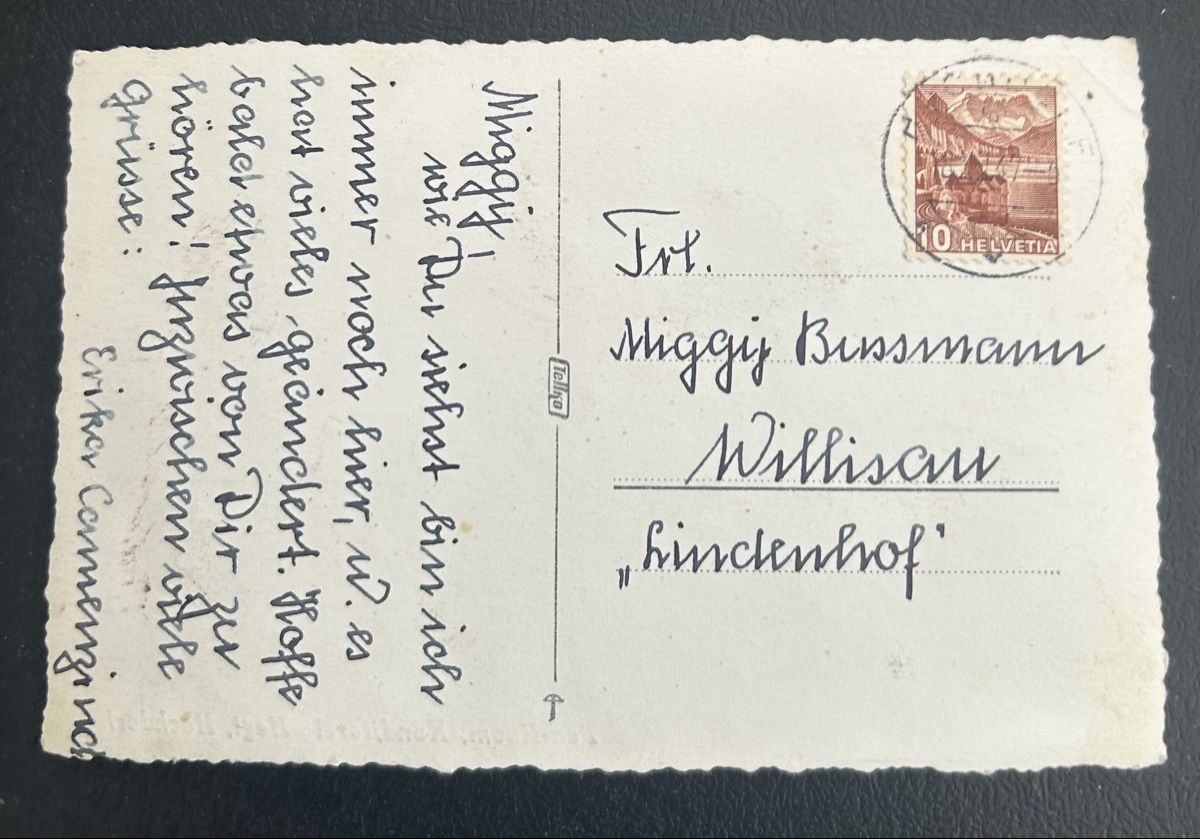 Miggy,
wie Du siehst bin ich
immer noch hier, u. es
hat vieles geändert. Hoffe
bald etwas von Dir zu
hören! Inzwischen viele
Grüsse:
Erika Camenzind
Tellko
10 HELVETIA
Frl.
Miggy Bussmann
Willisau
„Lindenhof"